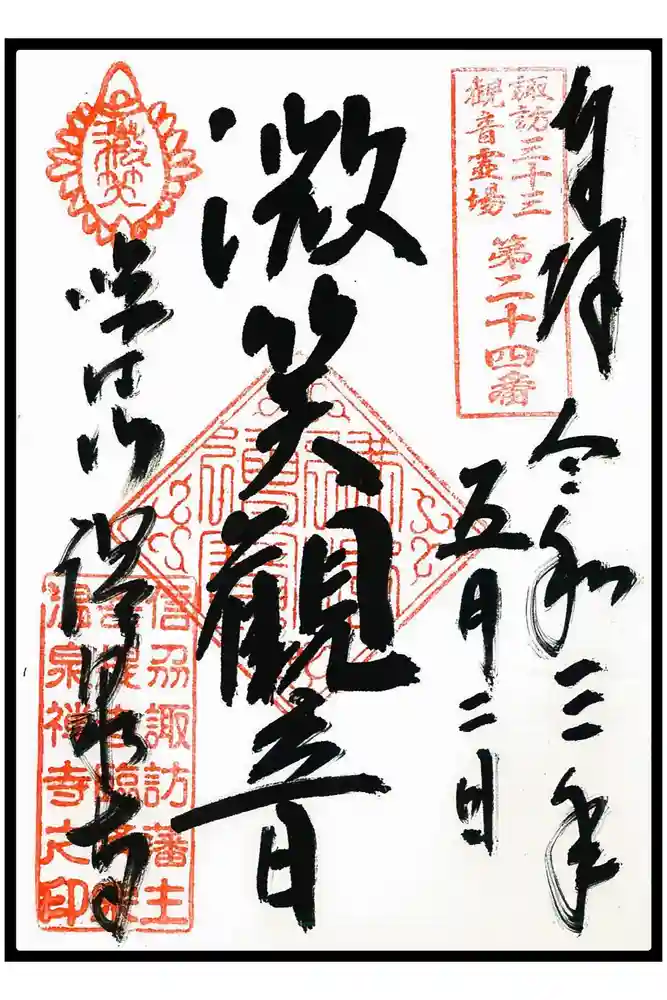 奉拝
令和三年
五月二日
諏訪三十三
観音霊場
第二十四番
微笑觀音
微笑
臨江山
温泉寺
信刕諏訪藩主
温泉禅寺之印